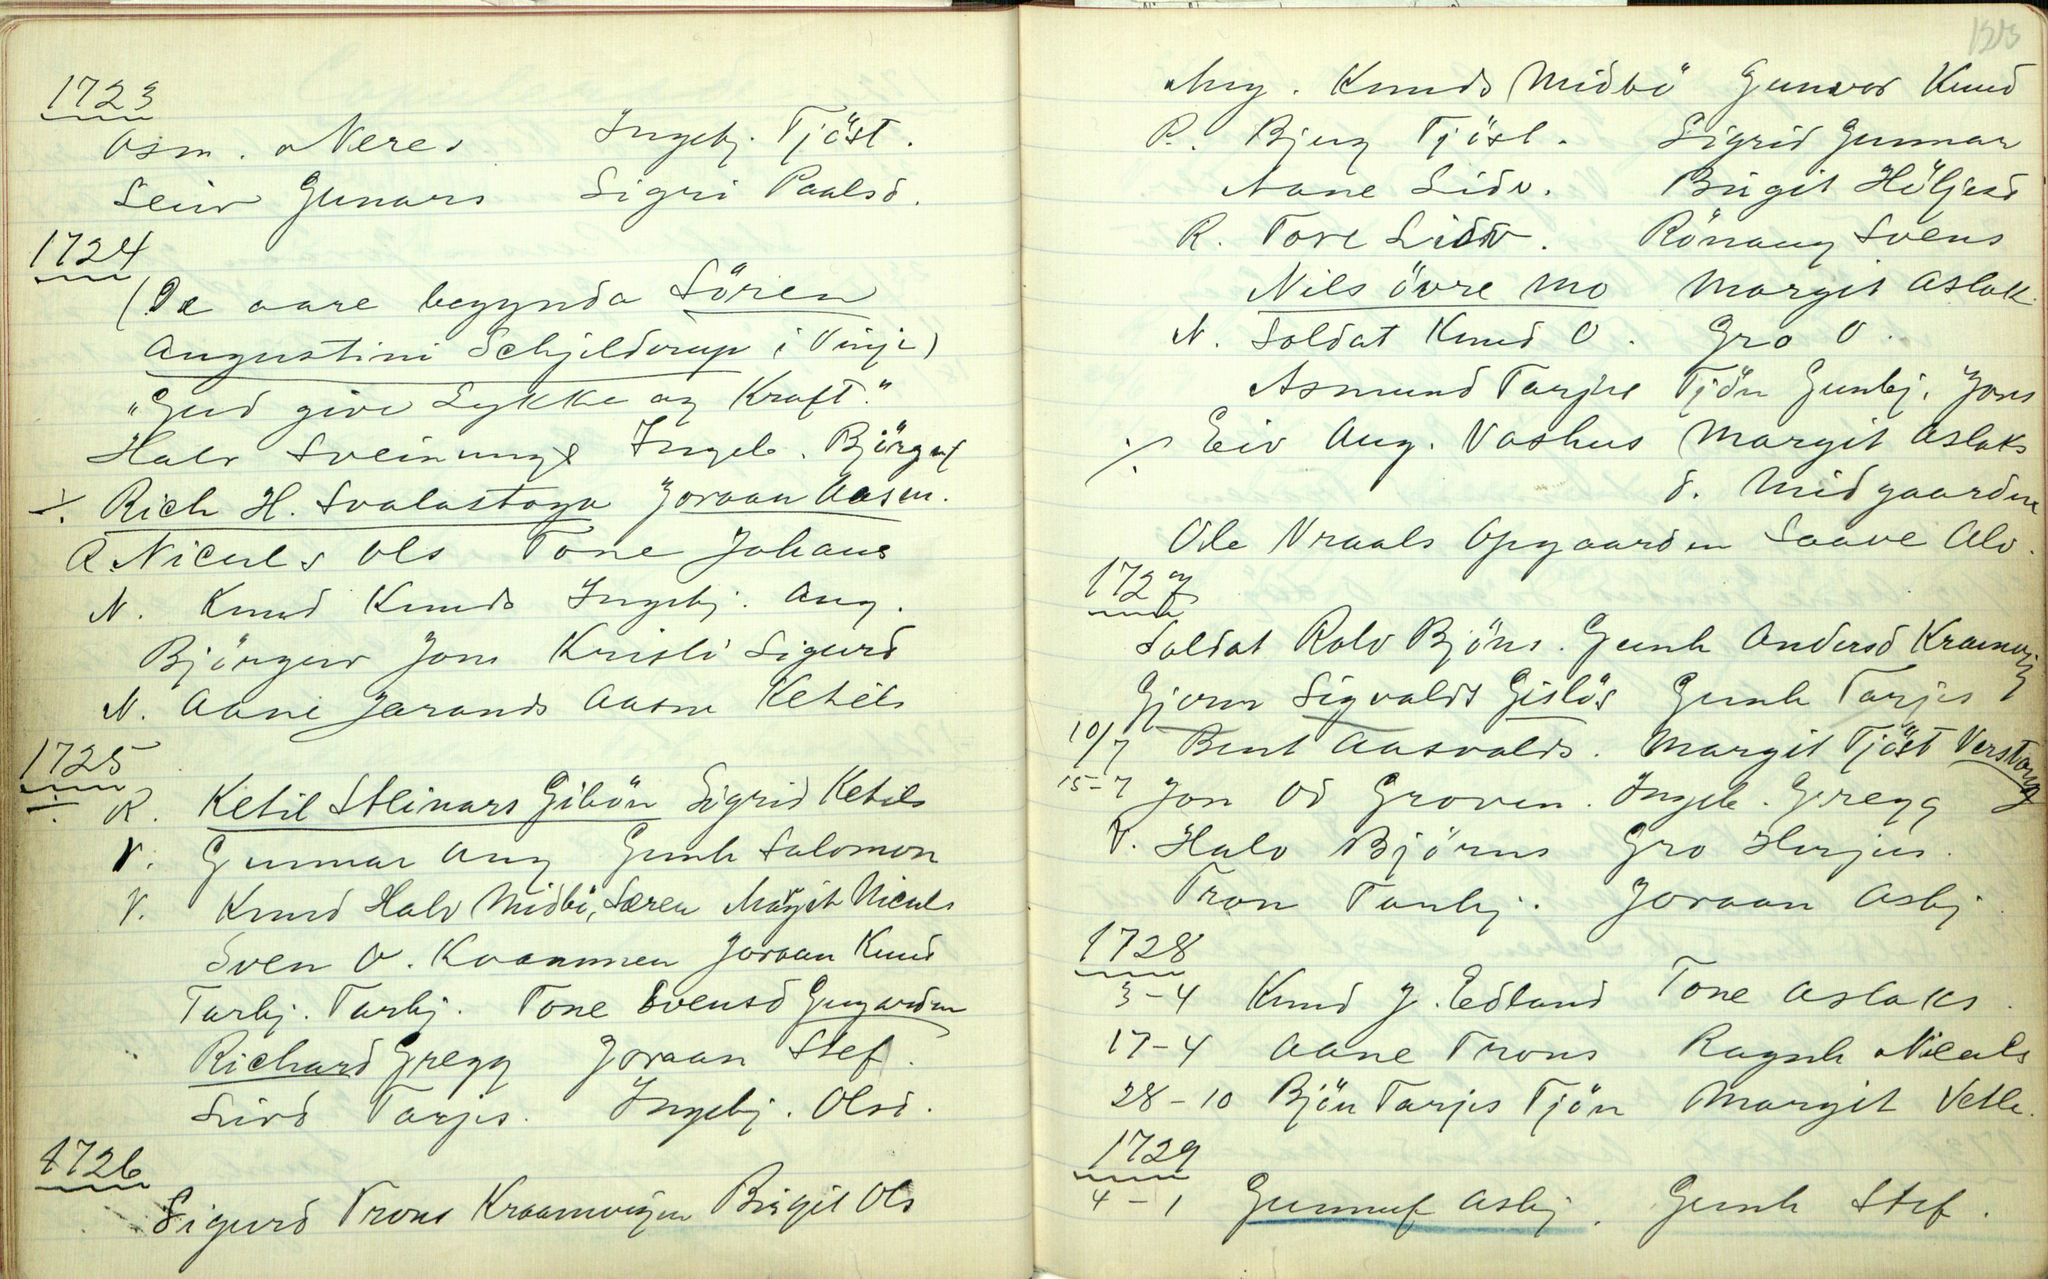 1723
Asm. Neres Ingebj. Tjöst.
Seiv Gunars Sigri Paalsd.
1724
(De aare begynda Sören
Augustini Schjelderup i Vinje)
"Gud give Lykke og Kraft."
Halv Sveinungs Ingeb. Björgulf
Rich H. Svalastoga Joraan Aasm.
R Niculs Ols Tone Johans
N. Knud Knuds Ingebj. Aug.
Björguv Jons Kristi Sigurd
N. Aane Jarands Aasne Ketils
1725
÷ R. Ketil Steinars Giböu Sigrid Ketils
V. Gunnar Aug Gunh Salomon
V. Knud Halv Midbö, Særen Margit Niculs
Sven O. Kvammen Joraan Knud
Tarbj. Tarbj. Tone Svensd Gugarden
Richard Gregg Joraan Stef.
Livd Tarjes. Ingebj. Olsd.
1726
Sigurd Trons Kraamvigen Birgit Ols
Aug. Knuds Midbö Gunvor Knud
R. Bjug Tjöst. Sigrid Gunnar
Aane Lidv. Birgit Höljesd
R. Tore Lidv. Rönaug Svens
Nils övre Mo Margit Aslak.
N. Soldat Knud O. Gro O.
Asmund Tarjei Tjön Gunbj. Jons
Eiv Aug. Vashus Margit Aslaks
d. Midgaarden
Ole Vraals Opgaarden Saave Alv.
1727
Soldat Rolv Bjöns. Gunh Andersd Kraamvig
Gjerm Sigvalds Gislös Gunh Tarjes
10/7 Bent Aasvalds. Margit Tjöst Verstoog
15-7 Jon Od Groven. Ingeb. Gregg
V. Halv Björns Gro Herjus.
Tron Tanbj. Joraan Asbj.
1728
3-4 Knud J. Edland Tone Aslaks.
17-4 Aane Trons Ragnh Niculs
28-10 Bjön Tarjes Tjön Margit Vetle.
1729
4-1 Gunnuf Asbj. Gunh Stef.